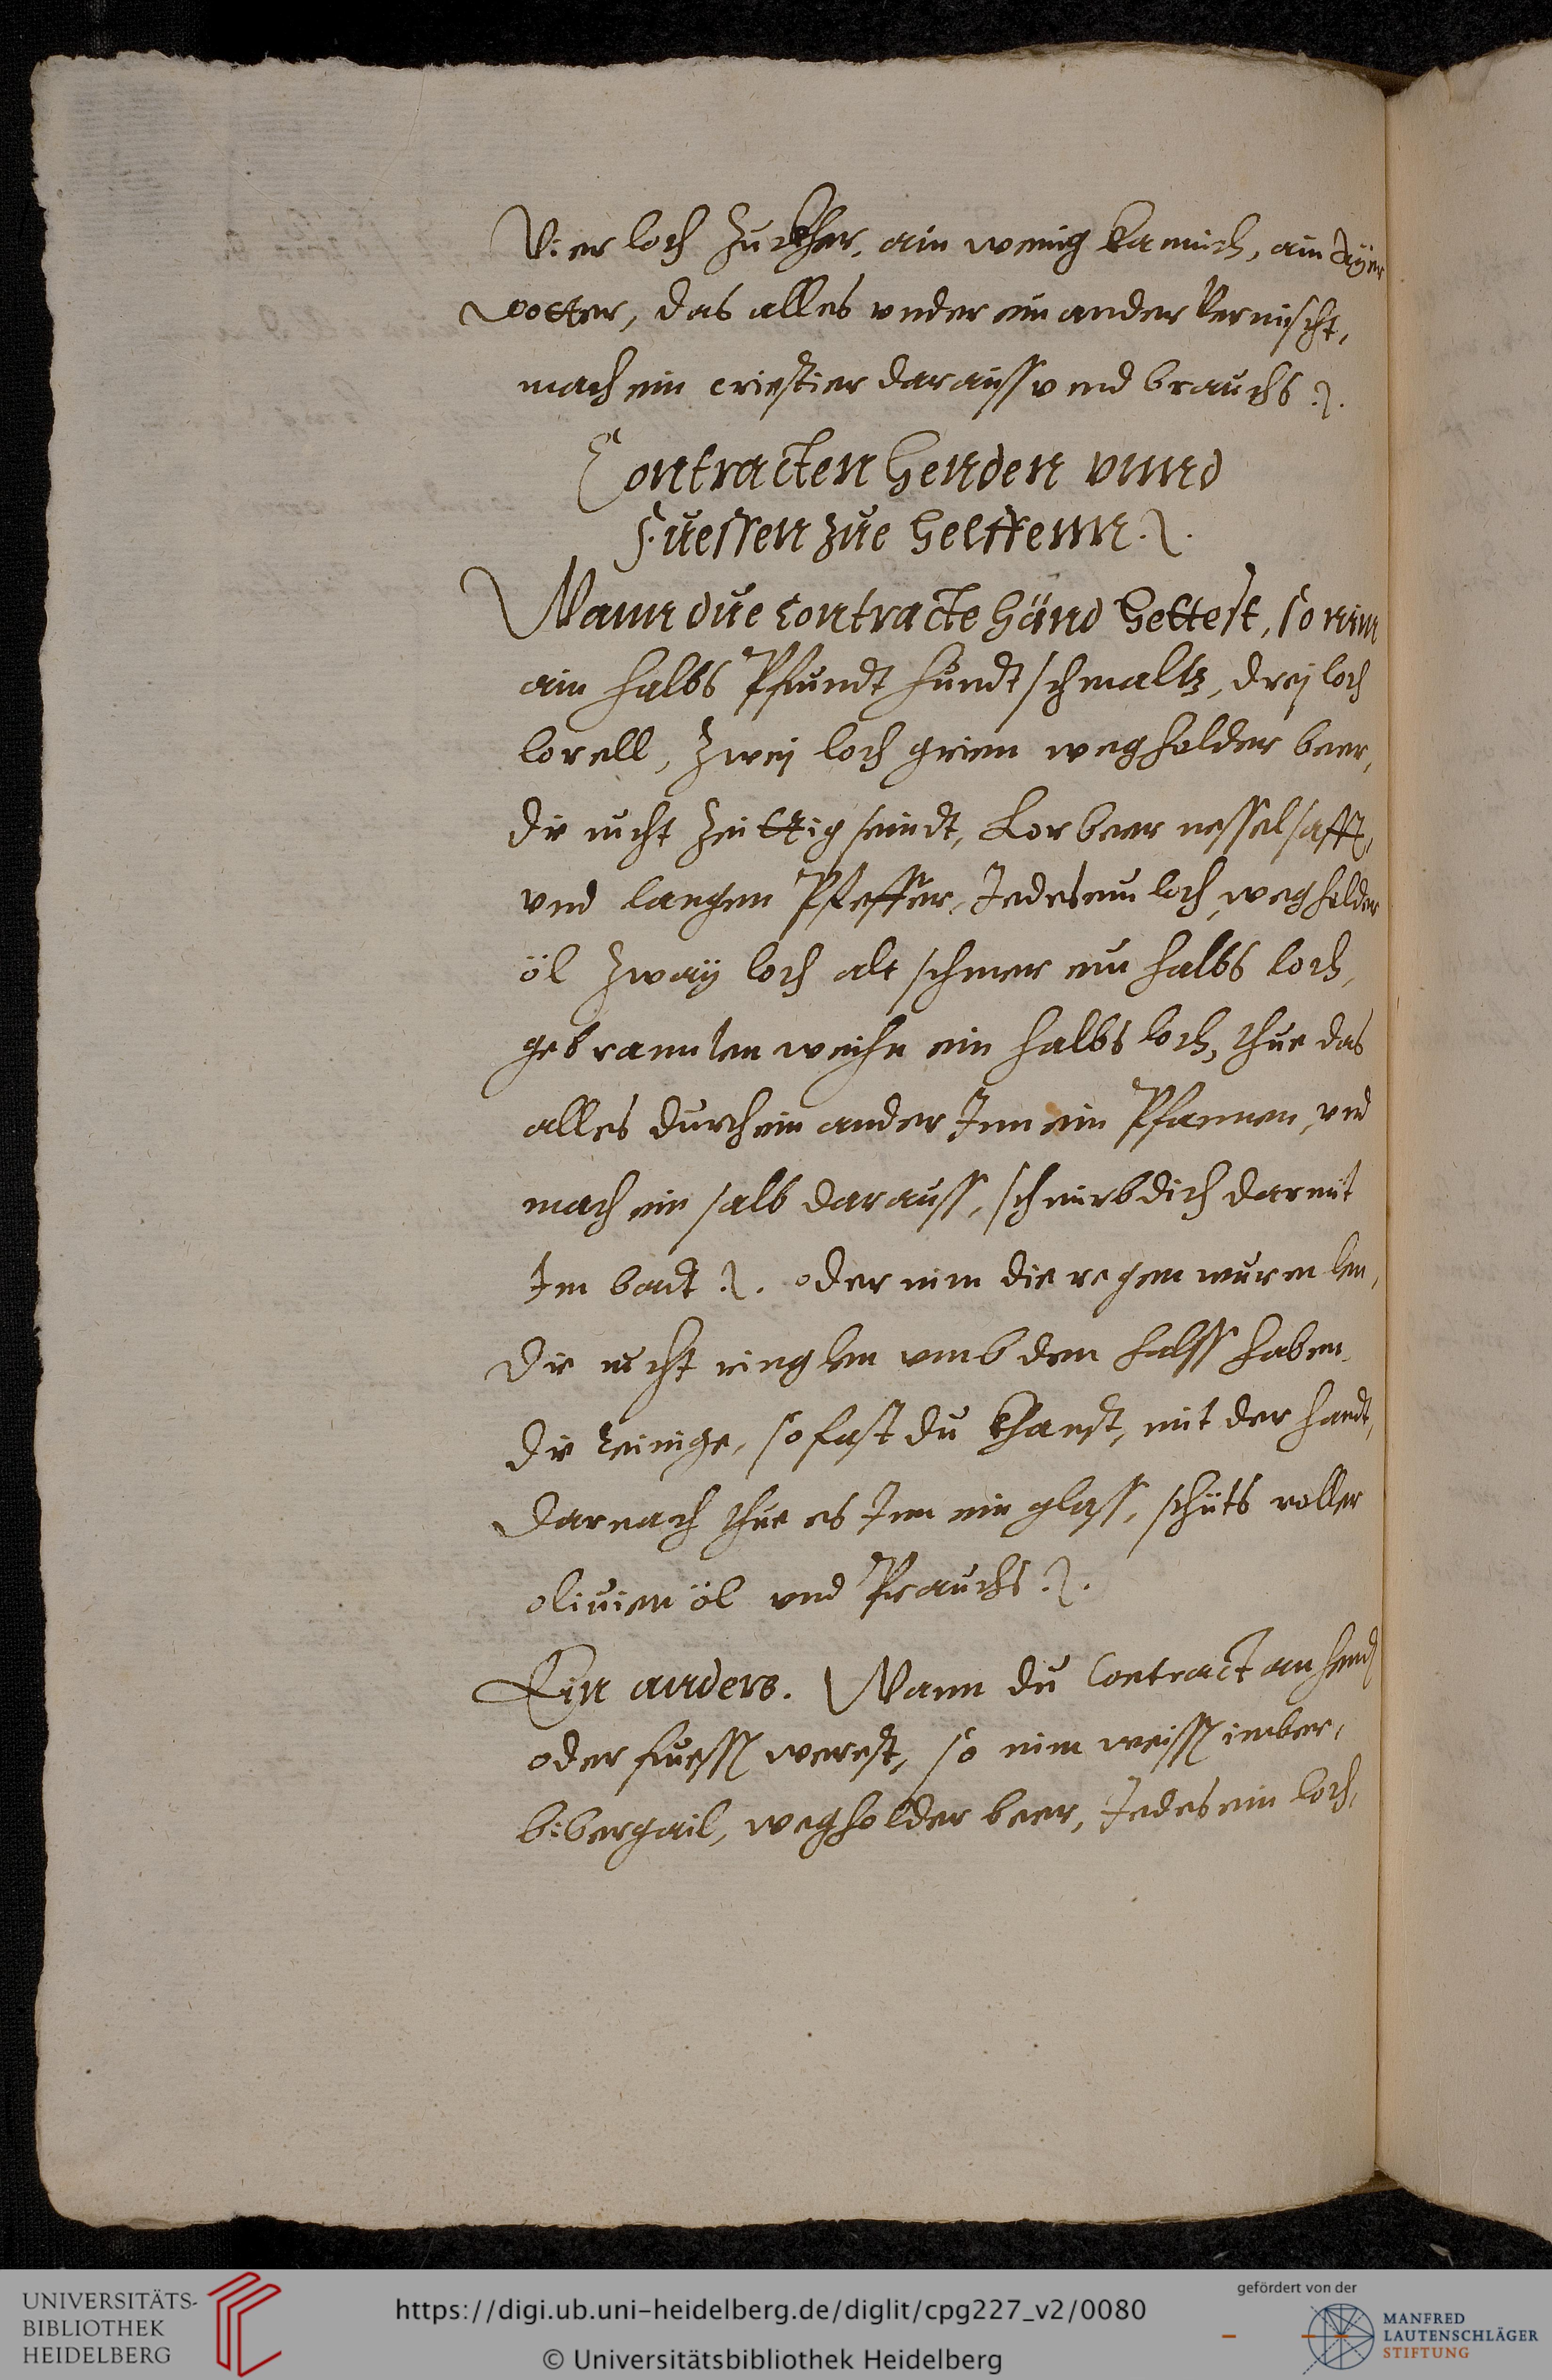 Vier loth Zuckher, ain wenig kamich, ain Ayer
dotter, das alles vnder ein ander Vermischt,
mach ein cristier darauss vnd brauchs ./.
Contracten henden vnnd
Fuessen zue helffenn ./.
Wann due Contracte händ hettest, so nim
ain halbs Pfundt hundtschmaltz, drej loth
lorell, Zwej loth grien wegholder beer,
die nicht Zeittig seindt, Lorbeer nesselsafft,
vnd langen Pfeffer, Jedes ein loth, wegholder
öl Zway loth alt schmer ein halbs loth,
gebrannten weihn ein halbs loth, thue das
alles durch ein ander Jnn ein Pfannen, vnd
mach ein salb darauss, schmirb dich darmit
Jm badt ./. oder nim die regenwurm len,
die nicht ringlen vmb den halss haben,
die reinige, so fast du khanst, mit der handt,
darnach thue es Jnn ein glass, schüts voller
oliuien öl vnd Prauchs ./.
Ein anders. Wann du Contract an hend
oder fuessen werest, so nim weissen imber,
bibergail, wegholder beer, Jedes ein loth,
UNIVERSITÄTS-
BIBLIOTHEK
HEIDELBERG
https://digi.ub.uni-heidelberg.de/diglit/cpg227_v2/0080
© Universitätsbibliothek Heidelberg
gefördert von der
MANFRED
LAUTENSCHLÄGER
STIFTUNG